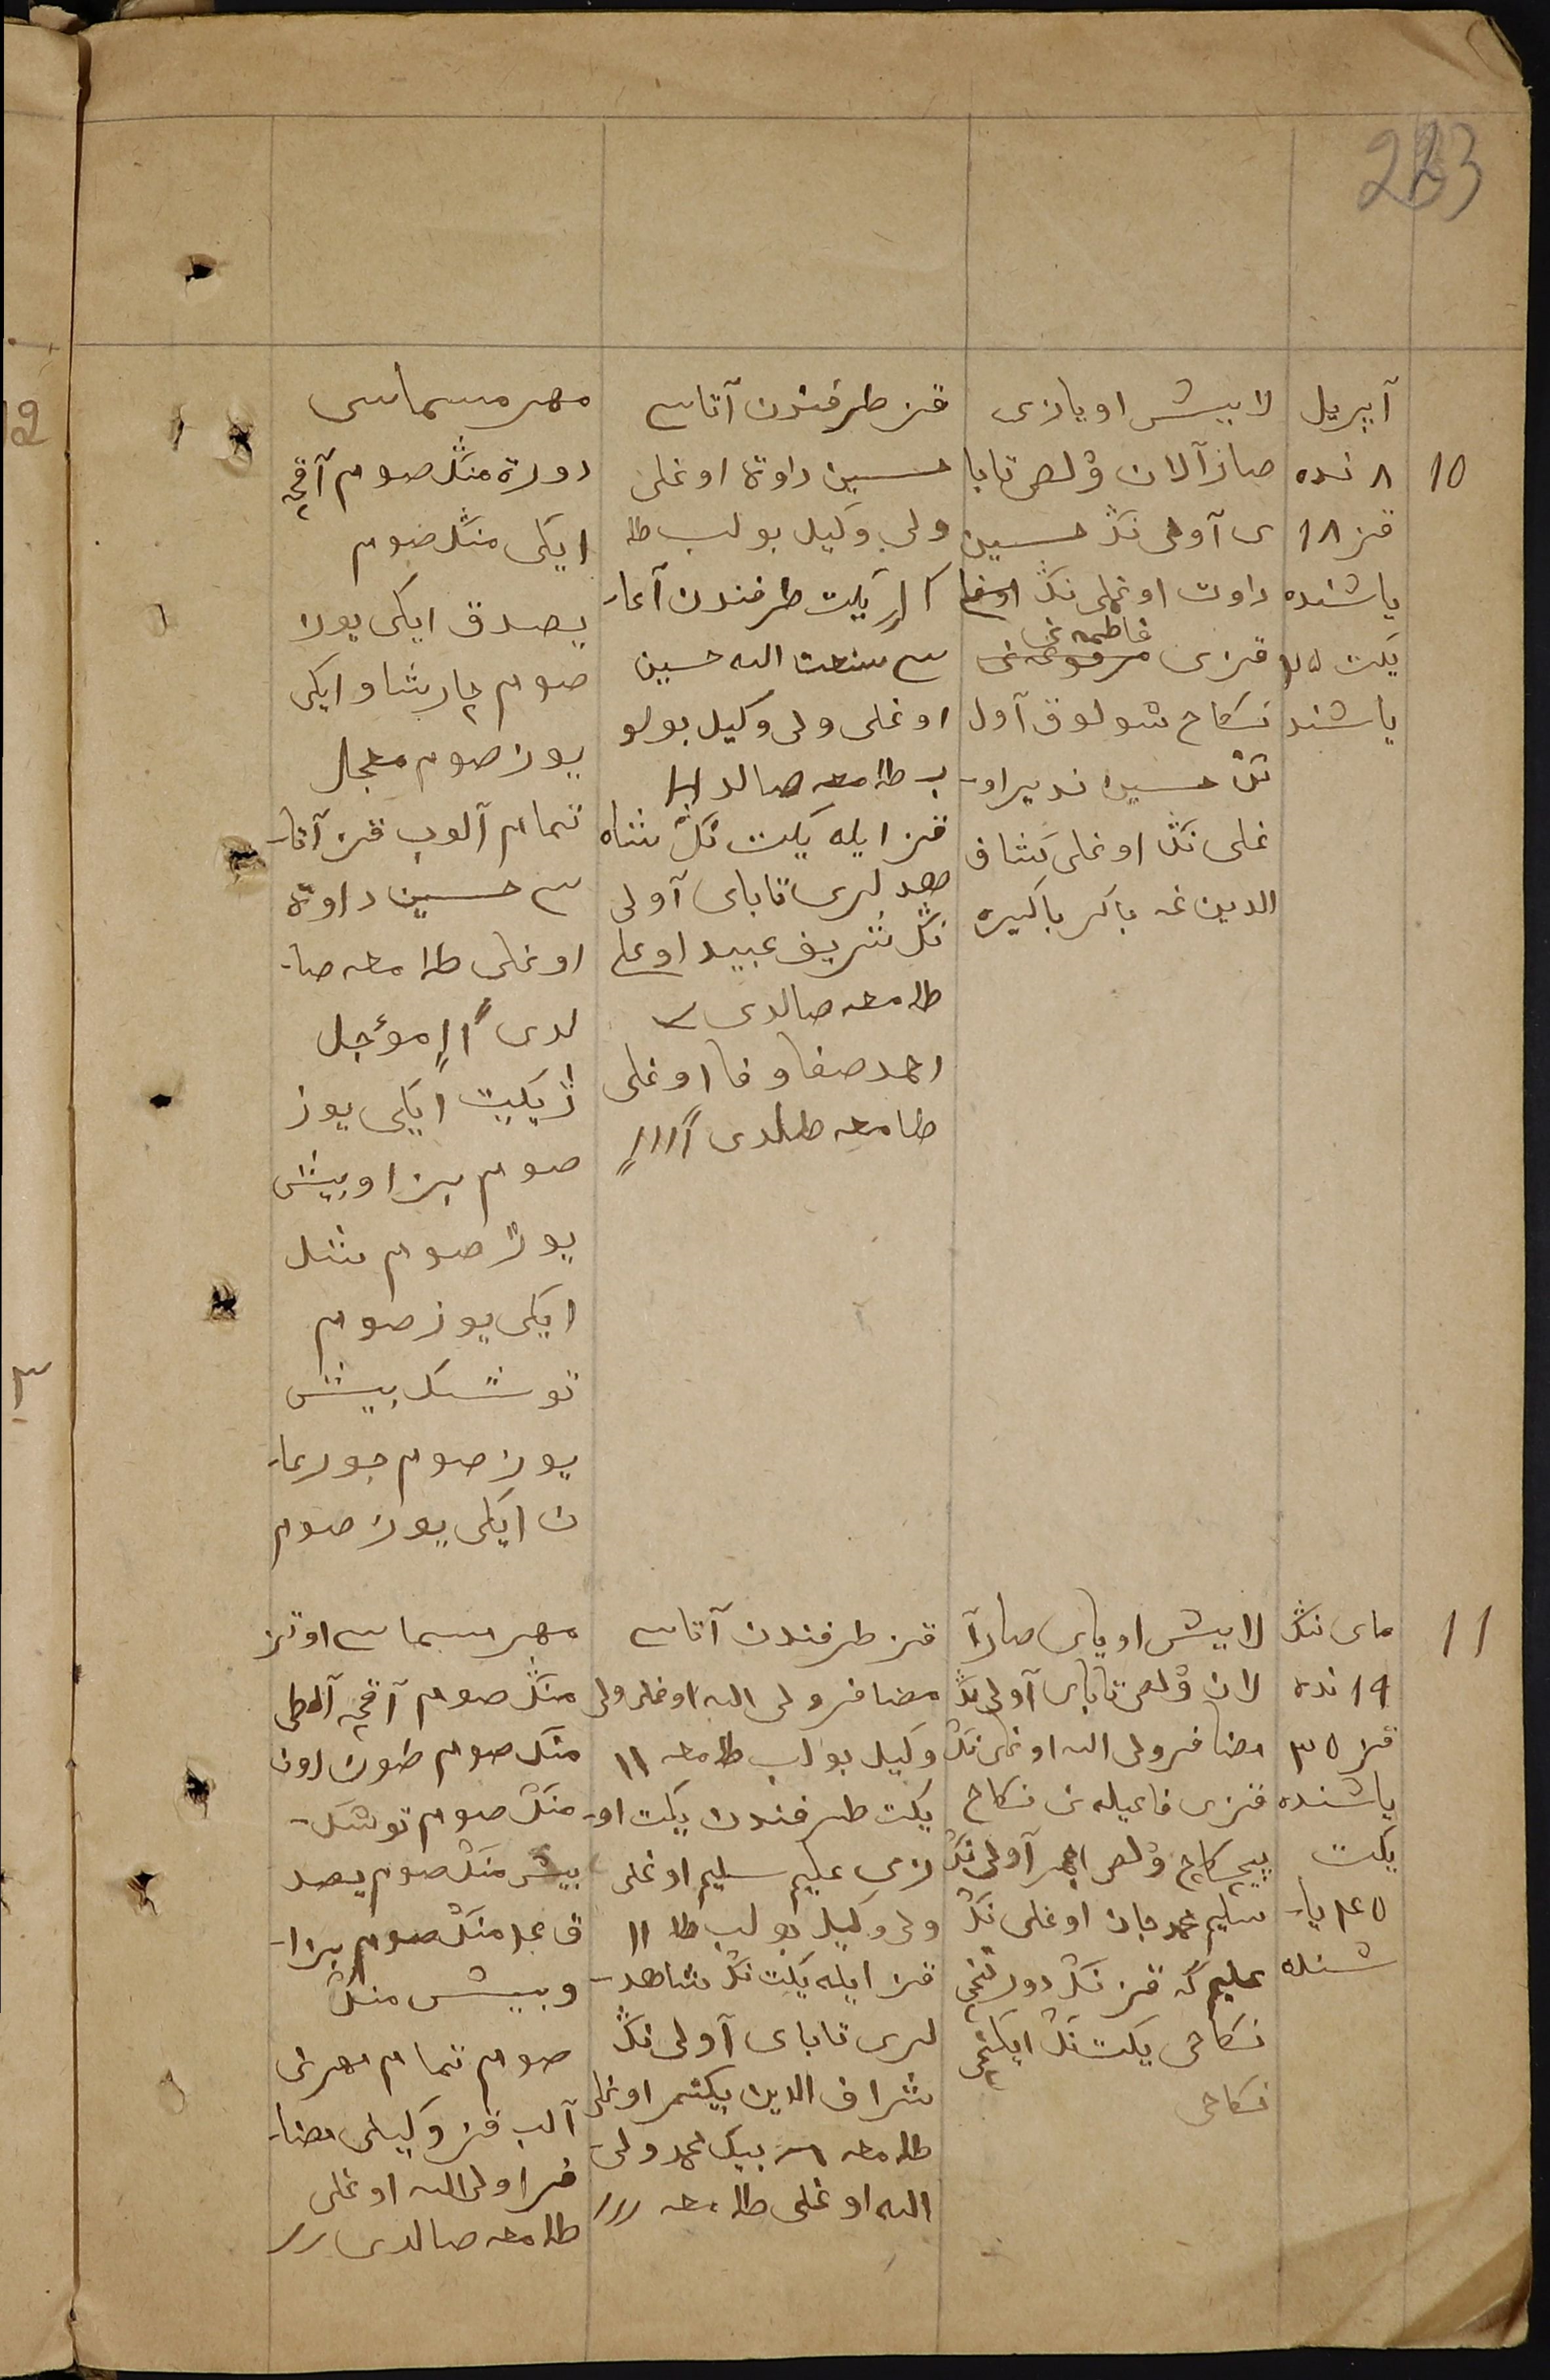 223
10
آپریل
٨ نده
قز ١٨
یاشنده
یکت ٢٥
یاشند
لایش اویازی
صازآلان ۋلص تابا
ی آولی ننڭ حسین
داوت اوغلی ننڭ
فاطمه نی
قزی
نکاح شولوق آول
ننڭ حسین ندیر او-
غلی ننڭ اوغلی کشاف
الدین غه باکر باکیره
قز طرفندن آتاسی
حسین داوت اوغلی
ولی وکیل بولب طا
یکت طرفندن آغا-
سی منعت الله حسین
اوغلی ولی وکیل بولو
ب طامعه صالد
قز ایله یکت ننڭ شاه
هدلری تابای آولی
ننڭ شریف عبید اوغلی
طامعه صالدی
احمدصفا وفا اوغلی
طامعه صالدی
مهر مسماسی
دورت منڭ صوم آقچه
ایکی منڭ صوم
یصدق ایکی یوز
صوم چارشاو ایکی
یوز صوم معجل
تمام آلوب قز آتا-
سی حسین داوت
اوغلی طامعه صا-
لدی مؤجل
ژیکیت ایکی یوز
صوم بزاو بیش
یوز صوم شل
ایکی یوز صوم
توشک بیش
یوز صوم جورغا-
ن ایکی یوز صوم
11
مای ننڭ
١٩ نده
قز ٣٥
یاشنده
یکت
٤٥ یا-
شنده
لایش اویای صازآ
لان ۋلص تابای آولی ننڭ
مضافر ولی الله اوغلی ننڭ
قزی فاعیله نی نکاح
آولی ننڭ
سلیم محمدجان اوغلی ننڭ
علیم گه قز ننڭ دورتنچی
نکاحی یکت ننڭ ایکنچی
نکاحی
قز طرفندن آتاسی
مضافر ولی الله اوغلی ولی
وکیل بولب طامعه
یکت طرفندن یکت او-
زی علیم سلیم اوغلی
ولی وکیل بولب طا
قز ایله یکت ننڭ شاهد-
لری تابای آولی ننڭ
شراف الدین بیکتمر اوغلی
طامعه بیک محمد ولی-
الله اوغلی طامعه
مهر مسماسی اوتز
منڭ صوم آقچه آلطی
منڭ صوم طون اون
منڭ صوم توشک-
بیش منڭ صوم یصد
ق منڭ صوم بزا-
و بیش منڭ
صوم تمام مهرنی
آلب قز وکیلی مضا-
فر اولی الله اوغلی
طامعه صالدی